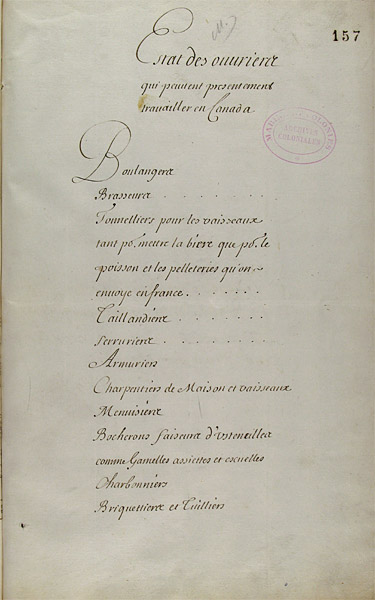 157
Estat des ouvriers
qui peuvent presentement
travailler en Canada
ARCHIVES
COLONIALES
Boulangers
Brasseurs . . . . . . .
Tonnelliers pour les vaisseaux
tant po. mettre la biere que po. le
poisson et les pelleteries qu'on
envoye en france . . . . . . .
Taillandiers . . . . . .
serruriers . . . . . . .
Armuriers
Charpentiers de Maison et vaisseaux
Menuisiers
Bocherons faiseurs d'ustencilles
comme Gamelles assiettes et escuelles
Charbonniers
Briquettiers et Tuilliers